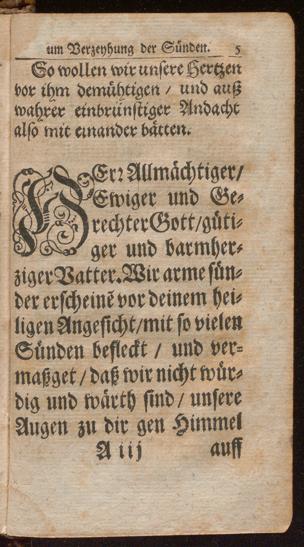 um Verzeyhung der Sünden. 5
So wollen wir unsere Hertzen
vor ihm demühtigen / und auß
wahrer einbrünstiger Andacht
also mit einander bätten.
HErꝛ Allmächtiger/
Ewiger und Ge-
rechter Gott/güti-
ger und barmher-
ziger Vatter. Wir arme sün-
der erscheinē vor deinem hei-
ligen Angesicht/mit so vielen
Sünden befleckt / und ver-
maßget / daß wir nicht wür-
dig und wärth sind / unsere
Augen zu dir gen Himmel
A iij auff